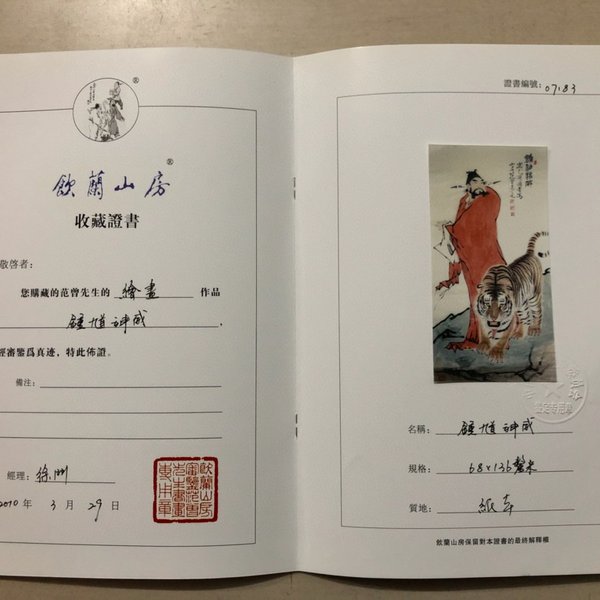 飲蘭山房®
收藏證書
敬啓者：
您購藏的范曾先生的 繪畫 作品
鍾馗神威 ，
經審鑒爲真迹，特此佈證。
備注：
經理：徐州
2010 年 3 月 29 日
飲蘭山房
證書編號：0783
名稱：鍾馗神威
規格：68×136釐米
質地：紙本
飲蘭山房保留對本證書的最終解釋權